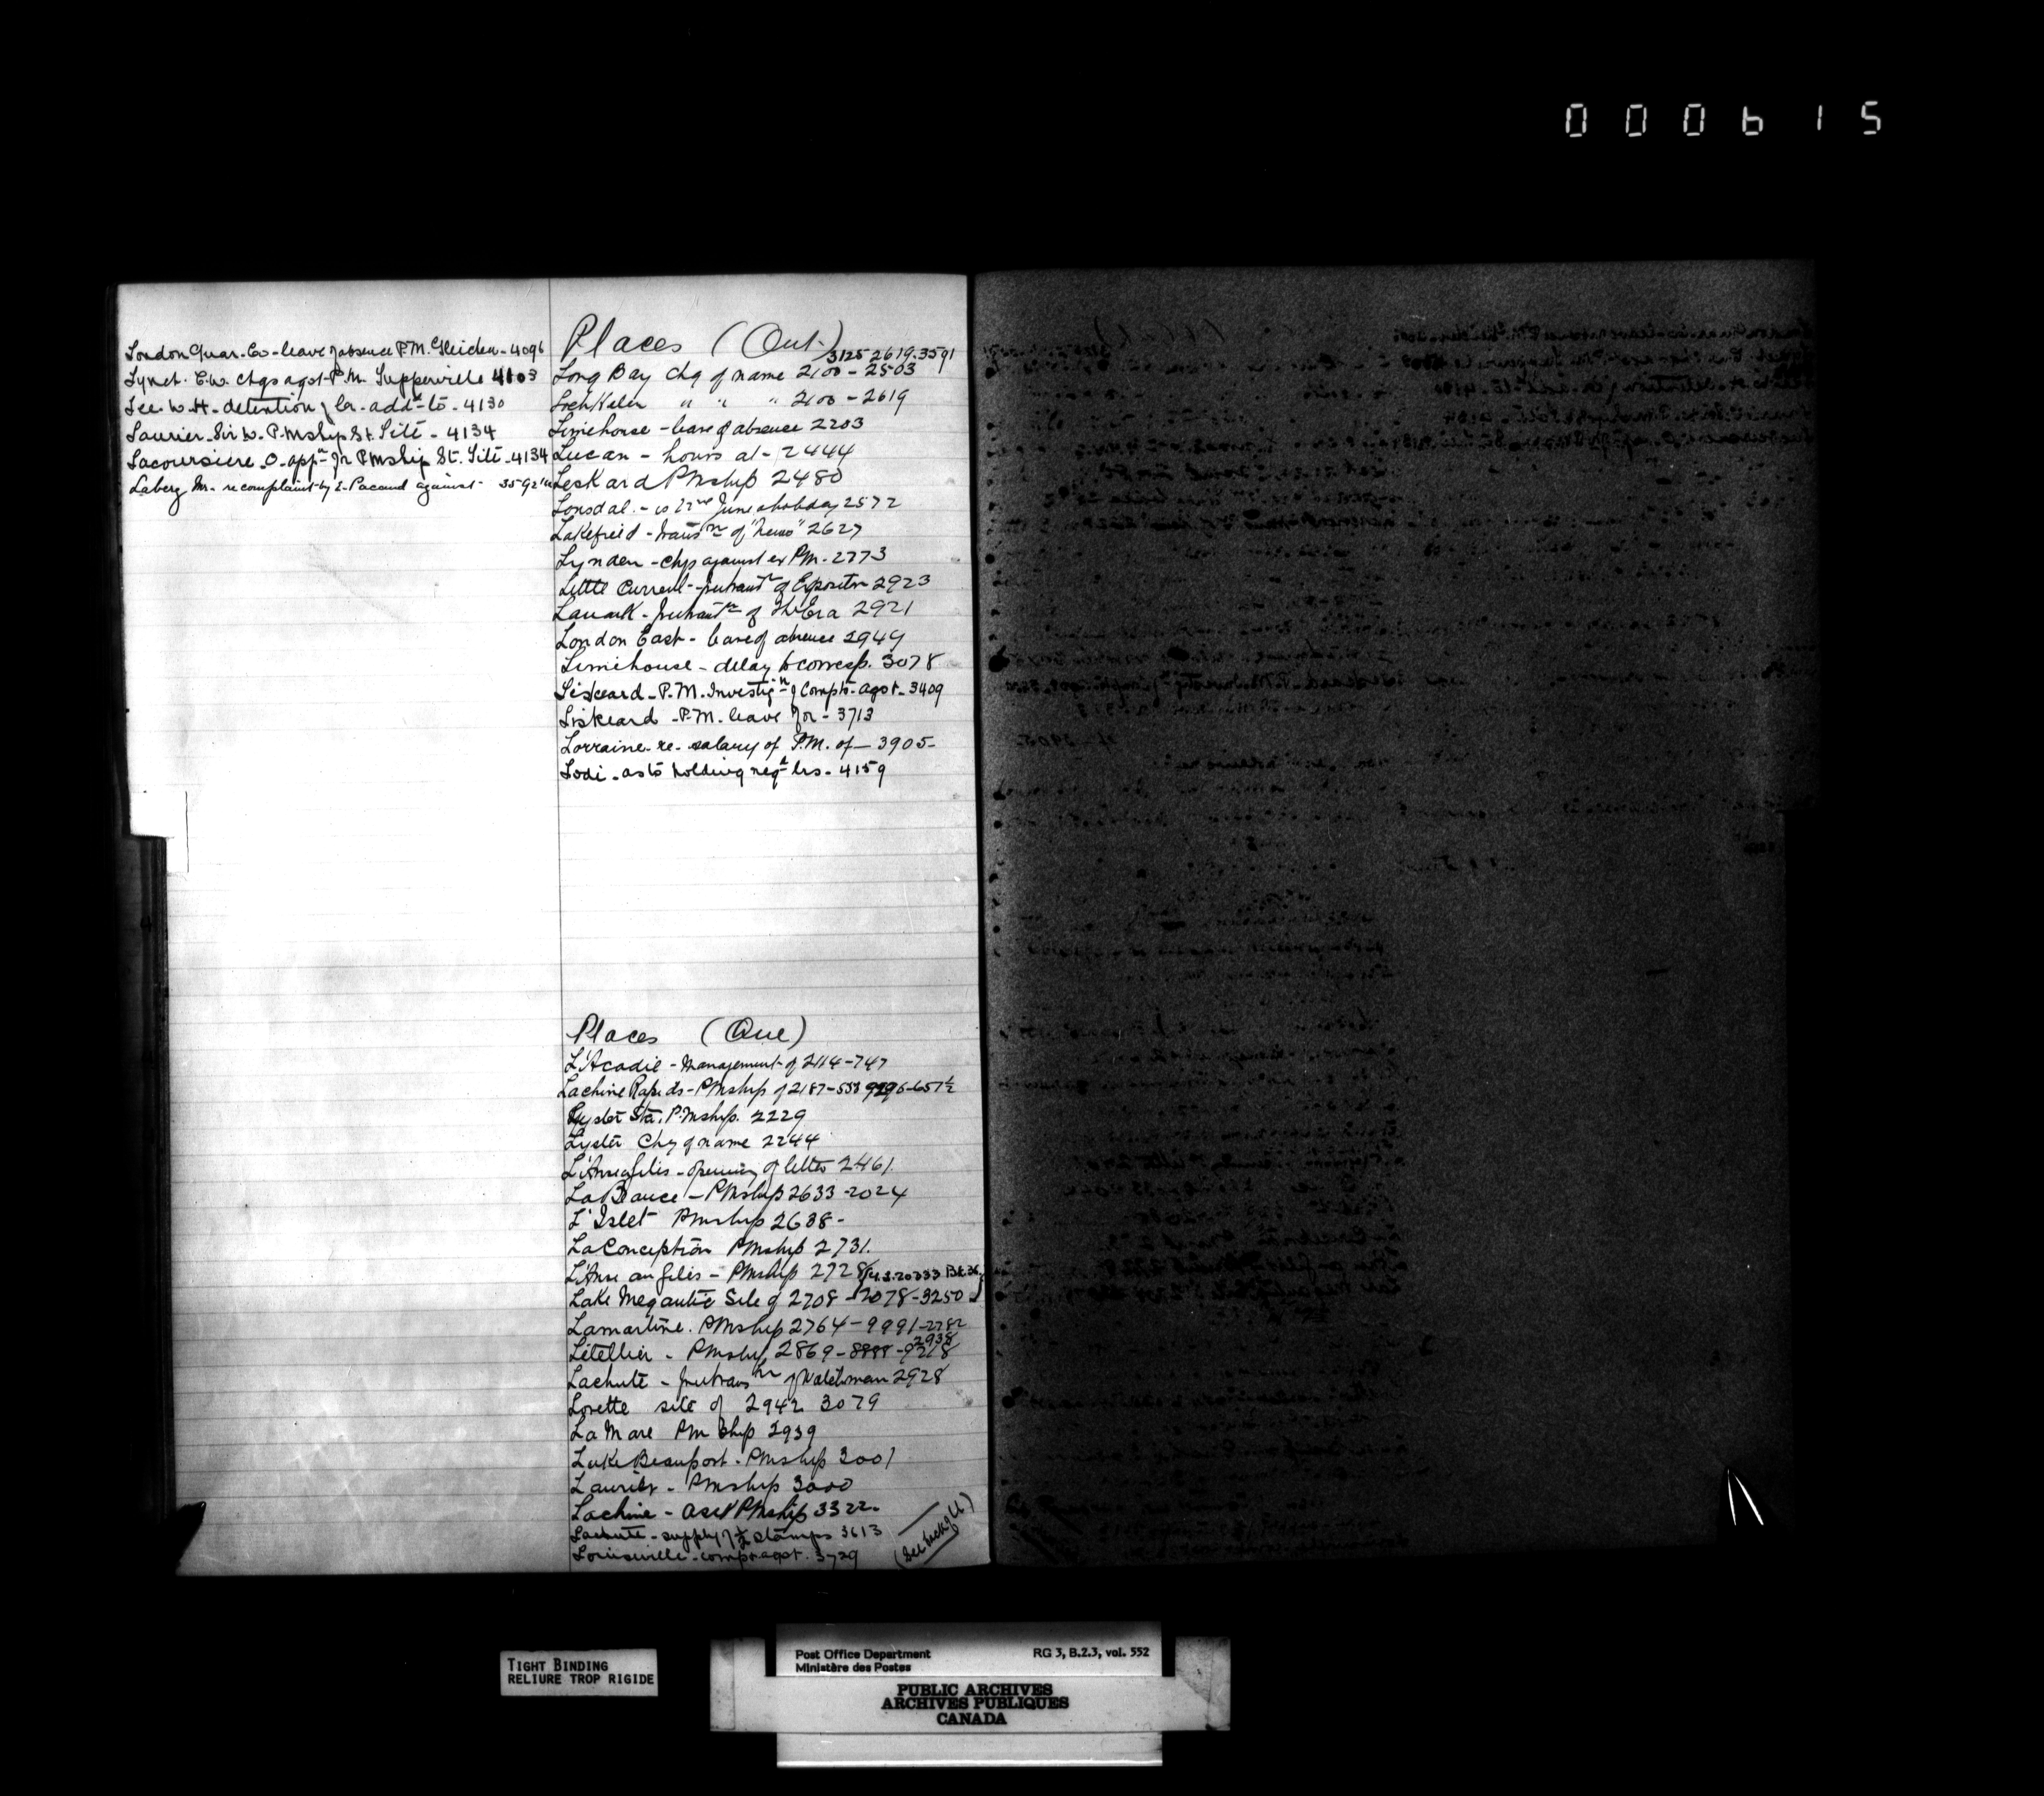 000615
London Guar. Co - leave of absence P.M. Gleichen - 4096
Lynch. E.W. chgs agst P.M. Tupperville 4103
Lee. W.H. detention of lr. addd to - 4130
Laurier Sir W. P.Mship St. Tite - 4134
Lacoursiere O. appn for PMship St. Tite - 4134
Laberg Mr. re complaint by E. Pacaud against 3592
Places (Ont.)
3125-2619-3591
Long Bay Chg of name 2100 - 2503
Loch " " " 2100 - 2619
Limehouse - leave of absence 2203
Lucan - hours at - 2444
Leskard PMship 2480
Lonsdal. - is 22nd June a holiday 2572
Lakefield - trans'n of "News" 2627
Lynden - chgs against ex PM. 2773
Little Current - of Expositor 2923
Lanark - of The Era 2921
London East - leave of absence 2949
Limehouse - delay to corresp. 3078
Liskeard - P.M. Investign of Compts. agst. 3409
Liskeard - P.M. leave for - 3713
Lorraine - re. salary of P.M. of - 3905 -
Lodi - as to holding regd lrs. 4159
Places (Que)
L'Acadie - Management of 2114-747
Lachine Rapids - PMship of 2187-558 657½
Lyster Sta. P.Mship. 2229
Lyster Chg of name 2244
L'Anse a Gilis - opening of letter 2461
La Beauce - PMship 2633 - 2024
L'Islet PMship 2638 -
La Conception PMship 2731.
L'Anse au Gilis - PMship 2728
Lake Megantic Site of 2708 - 2078 - 3250
Lamartine. PMship 2764 - 9991 - 2782
2938
Letellier - PMship 2869 - 8888 - 9218
Lachute - of Watchman 2928
Lorette site of 2942 3079
La Mare PM Ship 2939
Lake Beauport - PMship 3001
Laurier - PMship 3000
Lachine - Asst PMship 3322 -
Lachute - supply of ½ stamps 3613
Louiseville - comp. agst. 3729
(See back of LL)
TIGHT BINDING
RELIURE TROP RIGIDE
Post Office Department RG 3, B.2.3, vol. 552
Ministère des Postes
PUBLIC ARCHIVES
ARCHIVES PUBLIQUES
CANADA